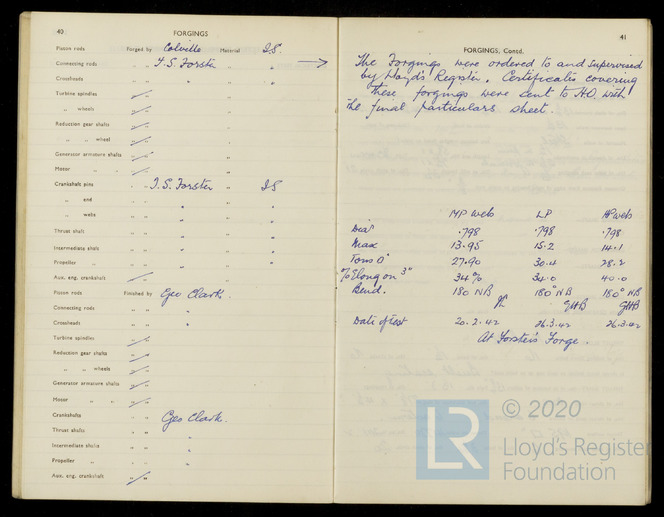 40
FORGINGS
Piston rods Forged by Colville Material I.S.
Connecting rods " " T.S. Forster " "
Crossheads " " " " "
Turbine spindles " " "
" wheels " " "
Reduction gear shafts " " "
" " wheel " " "
Generator armature shafts " " "
Motor " " " " "
Crankshaft pins " " T.S. Forster " IS
" end " " " " "
" webs " " " " "
Thrust shaft " " " " "
Intermediate shaft " " " " "
Propeller " " " " " "
Aux. eng. crankshaft " " "
Piston rods Finished by Geo Clark.
Connecting rods " " "
Crossheads " " "
Turbine spindles " "
Reduction gear shafts " "
" " wheels " "
Generator armature shafts " "
Motor " " " "
Crankshafts " " Geo Clark.
Thrust shafts " " "
Intermediate shafts " " "
Propeller " " " "
Aux. eng. crankshaft " "
41
FORGINGS, Contd.
→ The Forgings were ordered to and supervised
by Lloyd's Register. Certificates covering
these forgings were sent to H.O. with
the final particulars sheet.
MP web LP HP web
Diar .798 .798 .798
Max 13.95 15.2 14.1
Tons □" 27.90 30.4 28.2
% Elong on 3" 34% 34.0 40.0
Bend. 180 NB 180° NB 180° NB
GHB GHB
Date of Test 20.2.42 26.3.42 26.3.42
At Forster's Forge.
LR © 2020
Lloyd's Register
Foundation